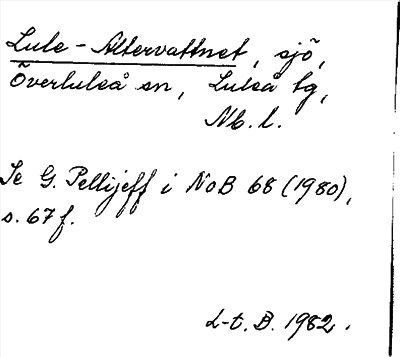 Lule-Altervattnet, sjö,
Överluleå sn, Luleå tg,
Nb. l.
Se G. Pellijeff i NoB 68 (1980),
s. 67 f.
L-t. B. 1982.